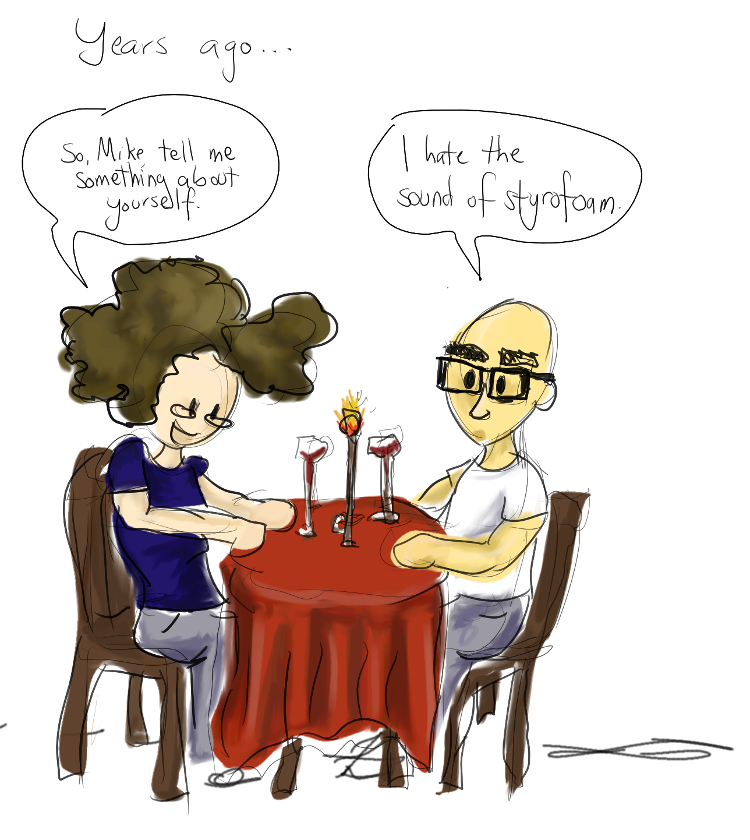 Years ago...
So, Mike tell me
something about
yourself.
I hate the
sound of styrofoam.